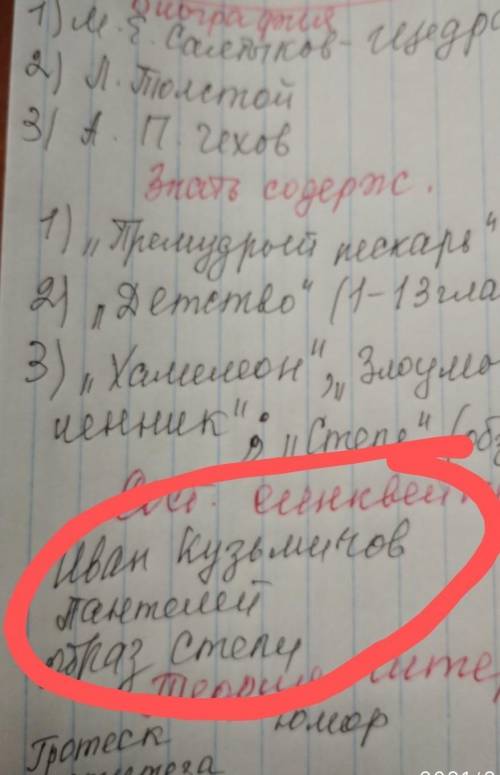 Биография
1) М. Е. Салтыков-Щедр
2) Л. Толстой
3) А. П. Чехов
Знать содерж.
1) „Премудрый пескарь"
2) „Детство" (1-13 гла
3) „Хамелеон", „Злоумы
ленник"; „Степь" (об
Сост. синквейн
Иван Кузьмичов
Пантелей
образ степи
Теория лите
Гротеск юмор